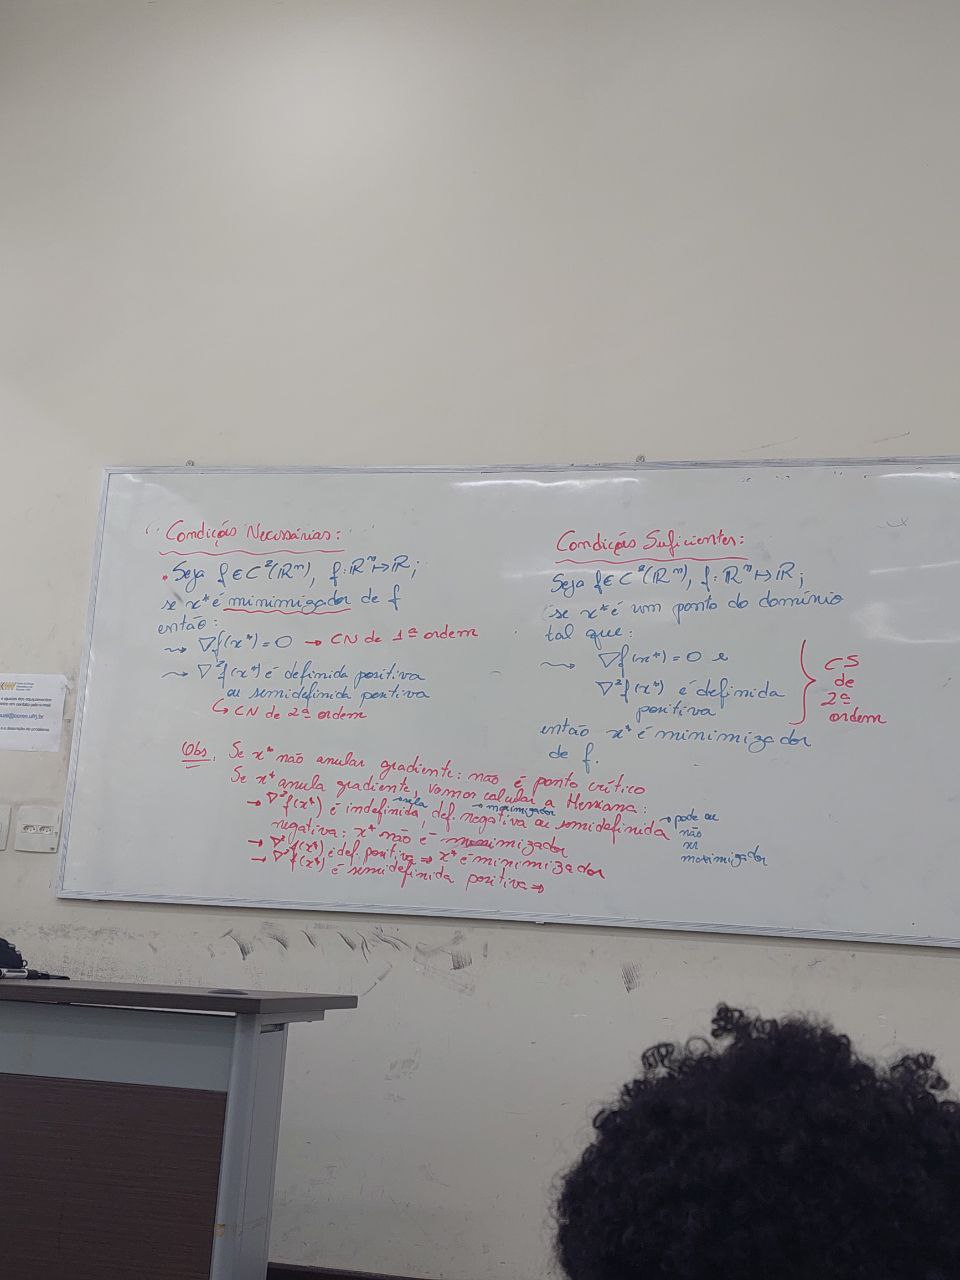 Condições Necessárias:
Seja f ∈ C²(ℝⁿ), f: ℝⁿ ↦ ℝ;
se x* é minimizador de f
então:
⇝ ∇f(x*) = 0 → CN de 1ª ordem
⇝ ∇²f(x*) é definida positiva
ou semidefinida positiva
↳ CN de 2ª ordem
Condições Suficientes:
Seja f ∈ C²(ℝⁿ), f: ℝⁿ ↦ ℝ;
se x* é um ponto do domínio
tal que:
⇝ ∇f(x*) = 0 e
∇²f(x*) é definida
positiva
CS
de
2ª
ordem
então x* é minimizador
de f.
Obs. Se x* não anular gradiente: não é ponto crítico
Se x* anula gradiente, vamos calcular a Hessiana:
→ sela → maximizador
→ ∇²f(x*) é indefinida def. negativa ou semidefinida
negativa: x* não é minimizador
→ pode ou
não
ser
maximizador
→ ∇²f(x*) é def. positiva ⇒ x* é minimizador
→ ∇²f(x*) é semidefinida positiva ⇒